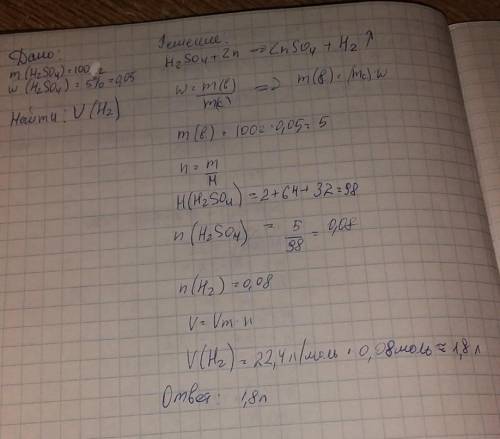 Дано:
m(H₂SO₄)=100 г
w(H₂SO₄) = 5%=0,05
Найти: V(H₂)
Решение:
H₂SO₄+Zn => ZnSO₄ + H₂↑
w = m(в)/m(с) => m(в) = m(с)·w
m(в) = 100 · 0,05 = 5
n = m/M
M(H₂SO₄) = 2+64+32=98
n(H₂SO₄) = 5/98 = 0,08
n(H₂) = 0,08
V = Vm · n
V(H₂) = 22,4 л/моль · 0,08 моль ≈ 1,8 л
Ответ: 1,8 л